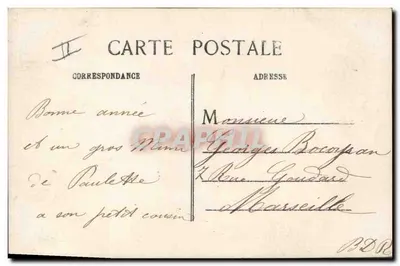 II
CARTE POSTALE
CORRESPONDANCE
ADRESSE
Bonne année
et un gros Mimi
de Paulette
a son petit cousin
Monsieur
Georges
7 Rue Goudard
Marseille
B D R